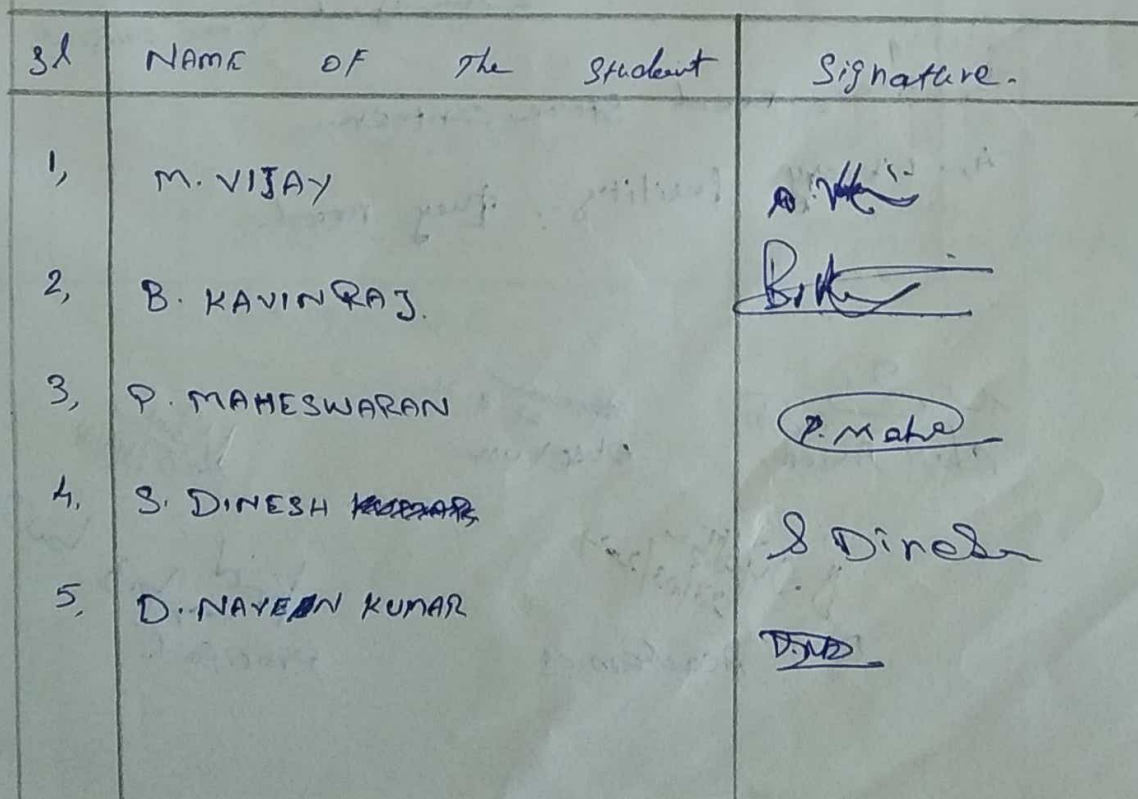 Sl NAME OF The Student Signature.
1, M. VIJAY
2, B. KAVINRAJ.
3, P. MAHESWARAN P. Mahe
4, S. DINESH S Dinesh
5, D. NAVEEN KUMAR